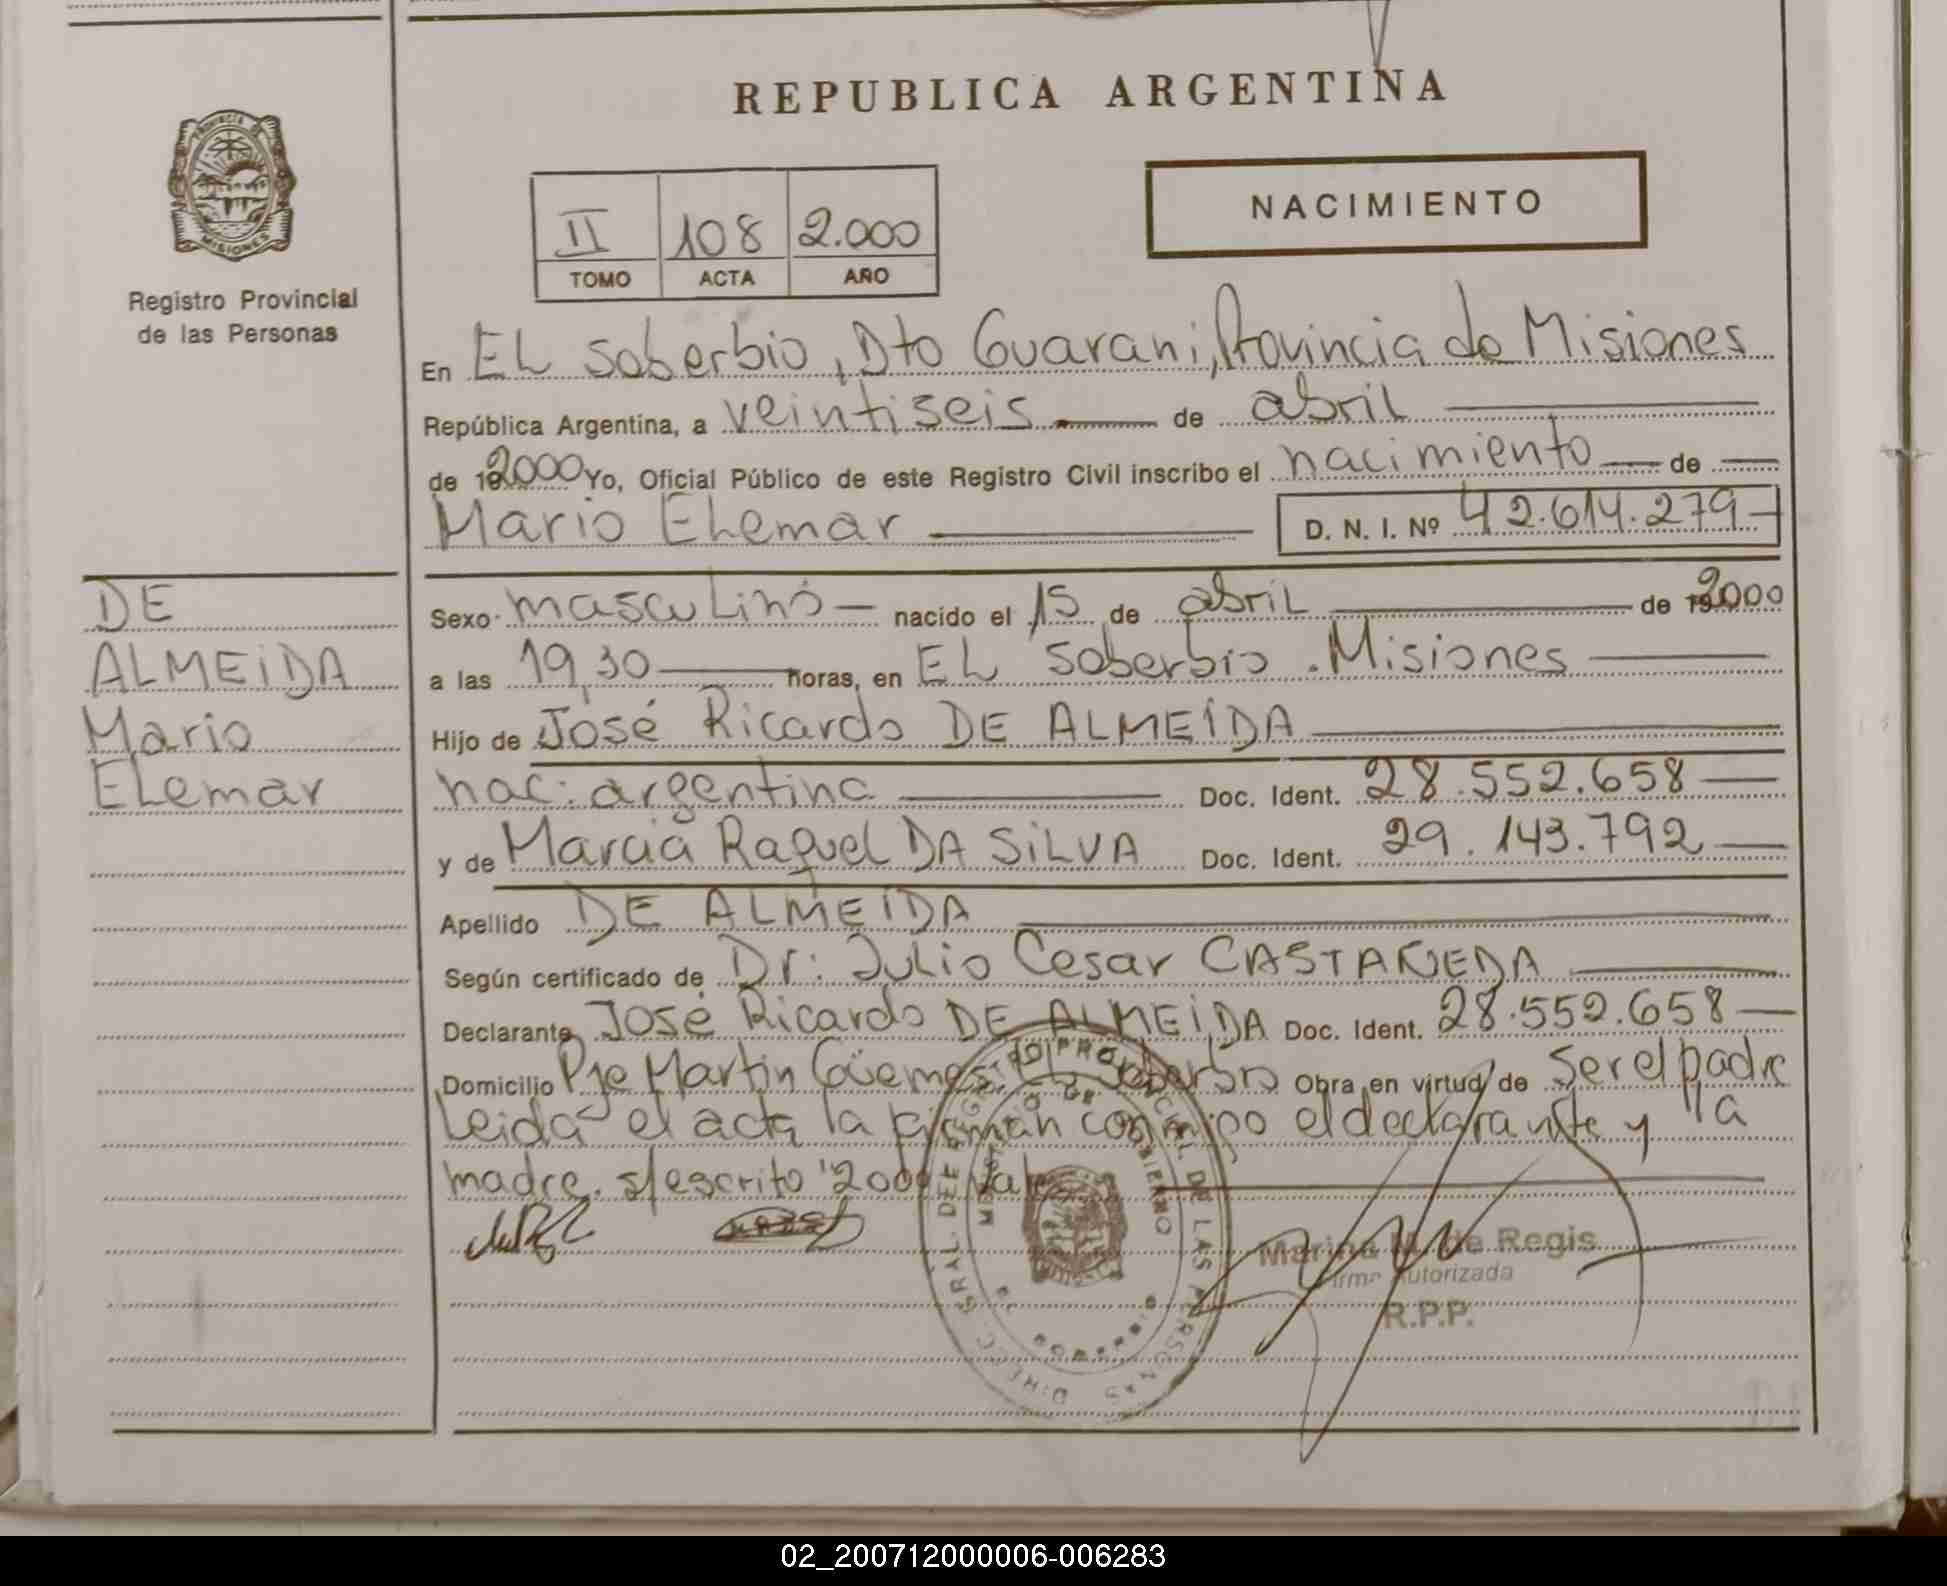 REPUBLICA ARGENTINA
PROVINCIA DE
MISIONES
Registro Provincial
de las Personas
II 108 2.000
TOMO ACTA AÑO
NACIMIENTO
En EL Soberbio, Dto Guarani, Provincia de Misiones
República Argentina, a veintiseis de abril
de 2000 Yo, Oficial Público de este Registro Civil inscribo el nacimiento de
Mario Elemar D. N. I. Nº 42.614.279
DE
ALMEIDA
Mario
Elemar
Sexo masculino nacido el 15 de abril de 2000
a las 19,30 horas, en EL Soberbio. Misiones
Hijo de José Ricardo DE ALMEIDA
nac: argentina Doc. Ident. 28.552.658
y de Marcia Raquel DA SILVA Doc. Ident. 29.143.792
Apellido DE ALMEIDA
Según certificado de Dr: Julio Cesar CASTAÑEDA
Declarante José Ricardo DE ALMEIDA Doc. Ident. 28.552.658
Domicilio Pje Martin Güemes Soberbio Obra en virtud de ser el padre
Leida el acta la firman conmigo el declarante y la
madre. s/escrito "2000" Vale
DIREC. GRAL. DE REGISTRO PROVINCIAL DE LAS PERSONAS
MINISTERIO DE GOBIERNO
Marina M. de Regis
Firma Autorizada
R.P.P.
02_200712000006-006283